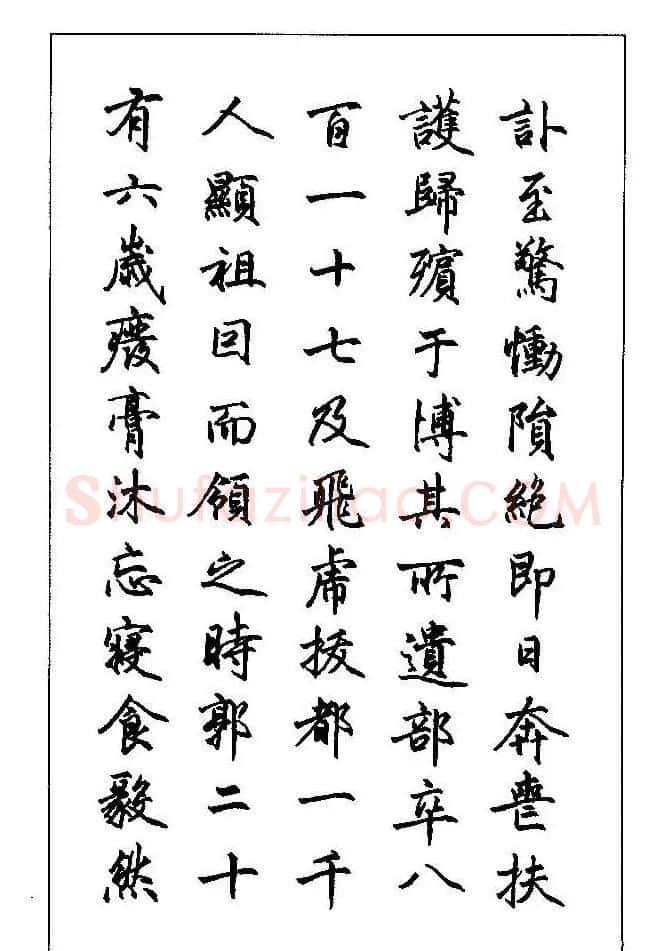 訃至驚慟隕絕即日奔喪扶
護歸殯于博其所遺部卒八
百一十七及飛虎援都一千
人顯祖回而領之時郭二十
有六歲廢膏沐忘寢食毅然
Shufaziliao.COM